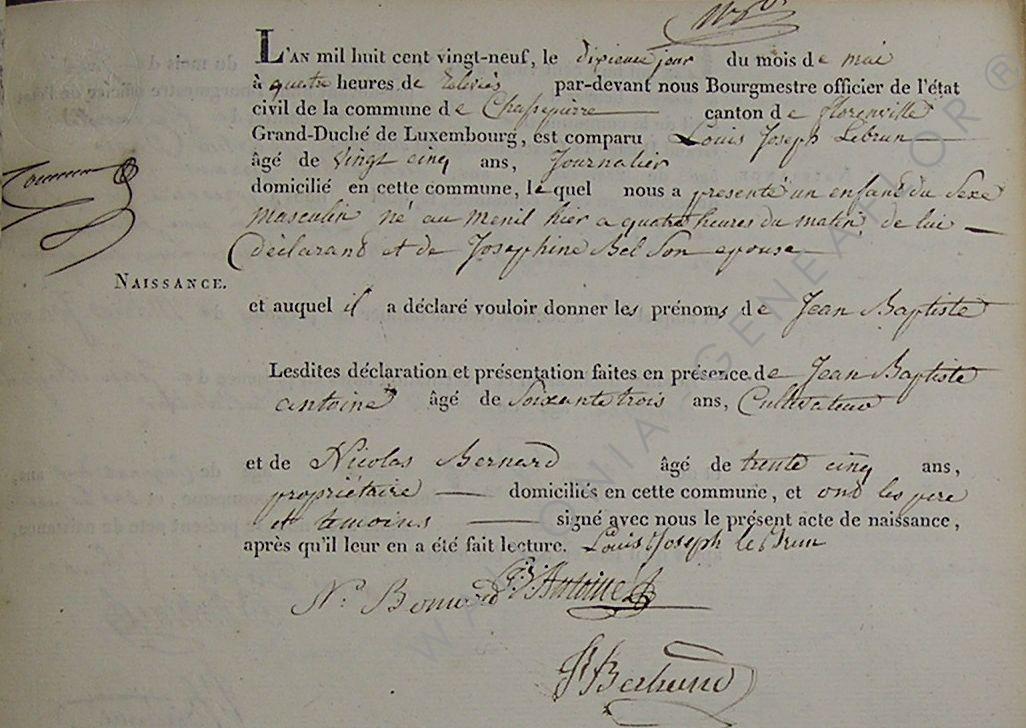 L'AN mil huit cent vingt-neuf, le dixieme jour du mois de mai
à quatre heures de relevés par-devant nous Bourgmestre officier de l'état
civil de la commune de Chassepierre canton de florenville
Grand-Duché de Luxembourg, est comparu Louis Joseph Lebrun
âgé de vingt cinq ans, Journalier
domicilié en cette commune, lequel nous a presenté un enfant du Sexe
masculin né au menil hier a quatre heures du matin, de lui
Déclarand et de Josephine Bel Son epouse
NAISSANCE.
et auquel il a déclaré vouloir donner les prénoms de Jean Baptiste
Lesdites déclaration et présentation faites en présence de Jean Baptiste
antoine âgé de Soixante trois ans, Cultivateur
et de Nicolas Bernard âgé de trente cinq ans,
propriétaire domiciliés en cette commune, et ond les pere
et temoins signé avec nous le présent acte de naissance,
après qu'il leur en a été fait lecture. Louis Joseph le Brun
J. B. Antoine
WALLONIA GENEAFLOR ®